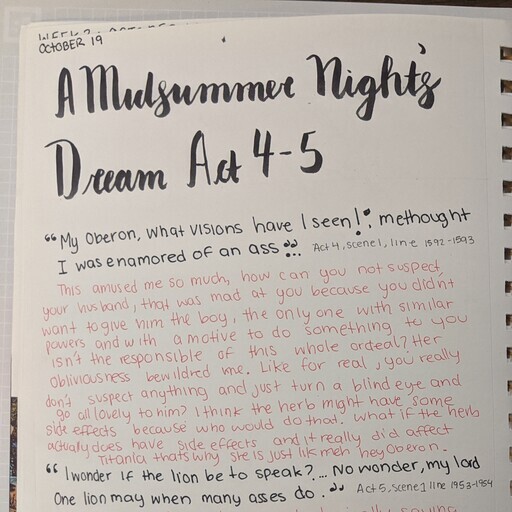 OCTOBER 19
A Midsummer Night's
Dream Act 4-5
"My Oberon, what visions have I seen!", methought
I was enamored of an ass"... Act 4, scene 1, line 1592-1593
This amused me so much, how can you not suspect,
your husband, that was mad at you because you didnt
want to give him the boy, the only one with similar
powers and with a motive to do something to you
isn't the responsible of this whole ordeal? Her
obliviousness bewildred me. Like for real, you really
don't suspect anything and just turn a blind eye and
go all lovely to him? I think the herb might have some
side effects because who would do that. what if the herb
actually does have side effects and it really did affect
Titania thats why she is just like meh hey Oberon.
"I wonder if the lion be to speak?... No wonder, my lord
One lion may when many asses do." Act 5, scene 1 line 1953-1954